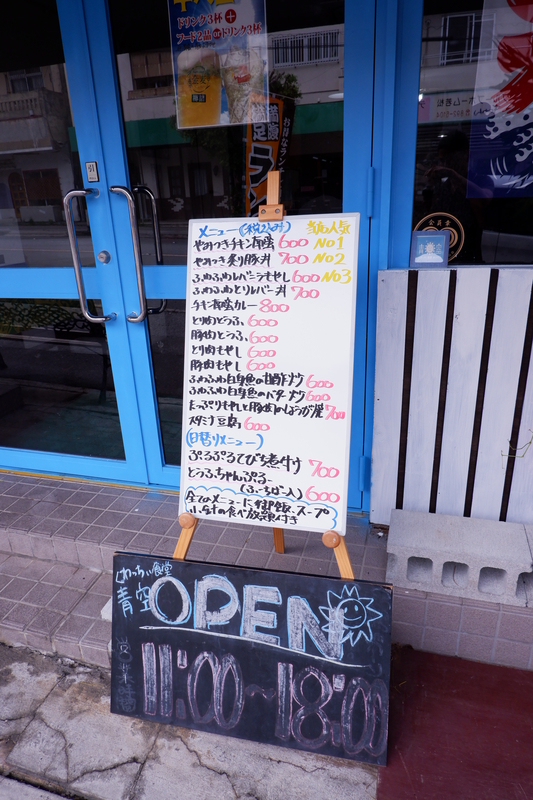 ドリンク3杯＋
フード2品 or ドリンク3杯
満腹
満足
お得なランチ
ラン
引
メニュー(税込み)
当店人気
やみつきチキン南蛮 600 No1
やみつき炙り豚丼 700 No2
ふわふわレバニラもやし 600 No3
ふわふわとりレバー丼 700
チキン南蛮カレー 800
とり肉とうふ 600
豚肉とうふ 600
とり肉もやし 600
豚肉もやし 600
ふわふわ白身魚の甘酢炒 600
ふわふわ白身魚のバター炒 600
たっぷりもやしと豚肉のしょうが焼 700
スタミナ豆腐 600
(日替りメニュー)
ぷるぷるてびち煮付け 700
とうふちゃんぷるー
(ふーちが入) 600
全てのメニューに御飯、スープ
小鉢の食べ放題付き
くわっちぃ食堂
青空
OPEN
営業時間
11:00～18:00